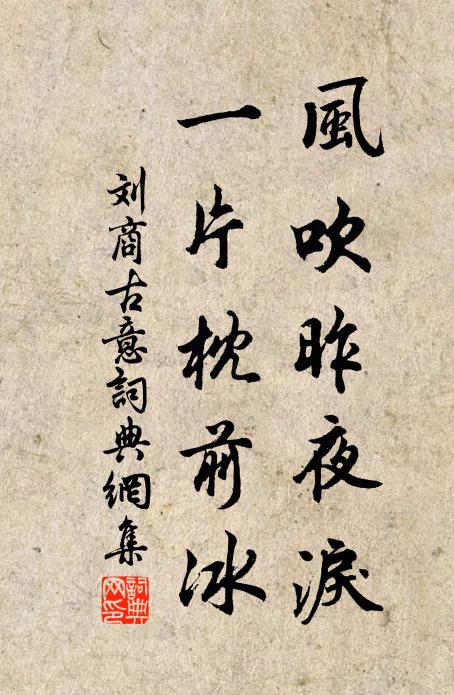 風吹昨夜淚
一片枕前冰
刘商古意詞典網集
詞典
网印